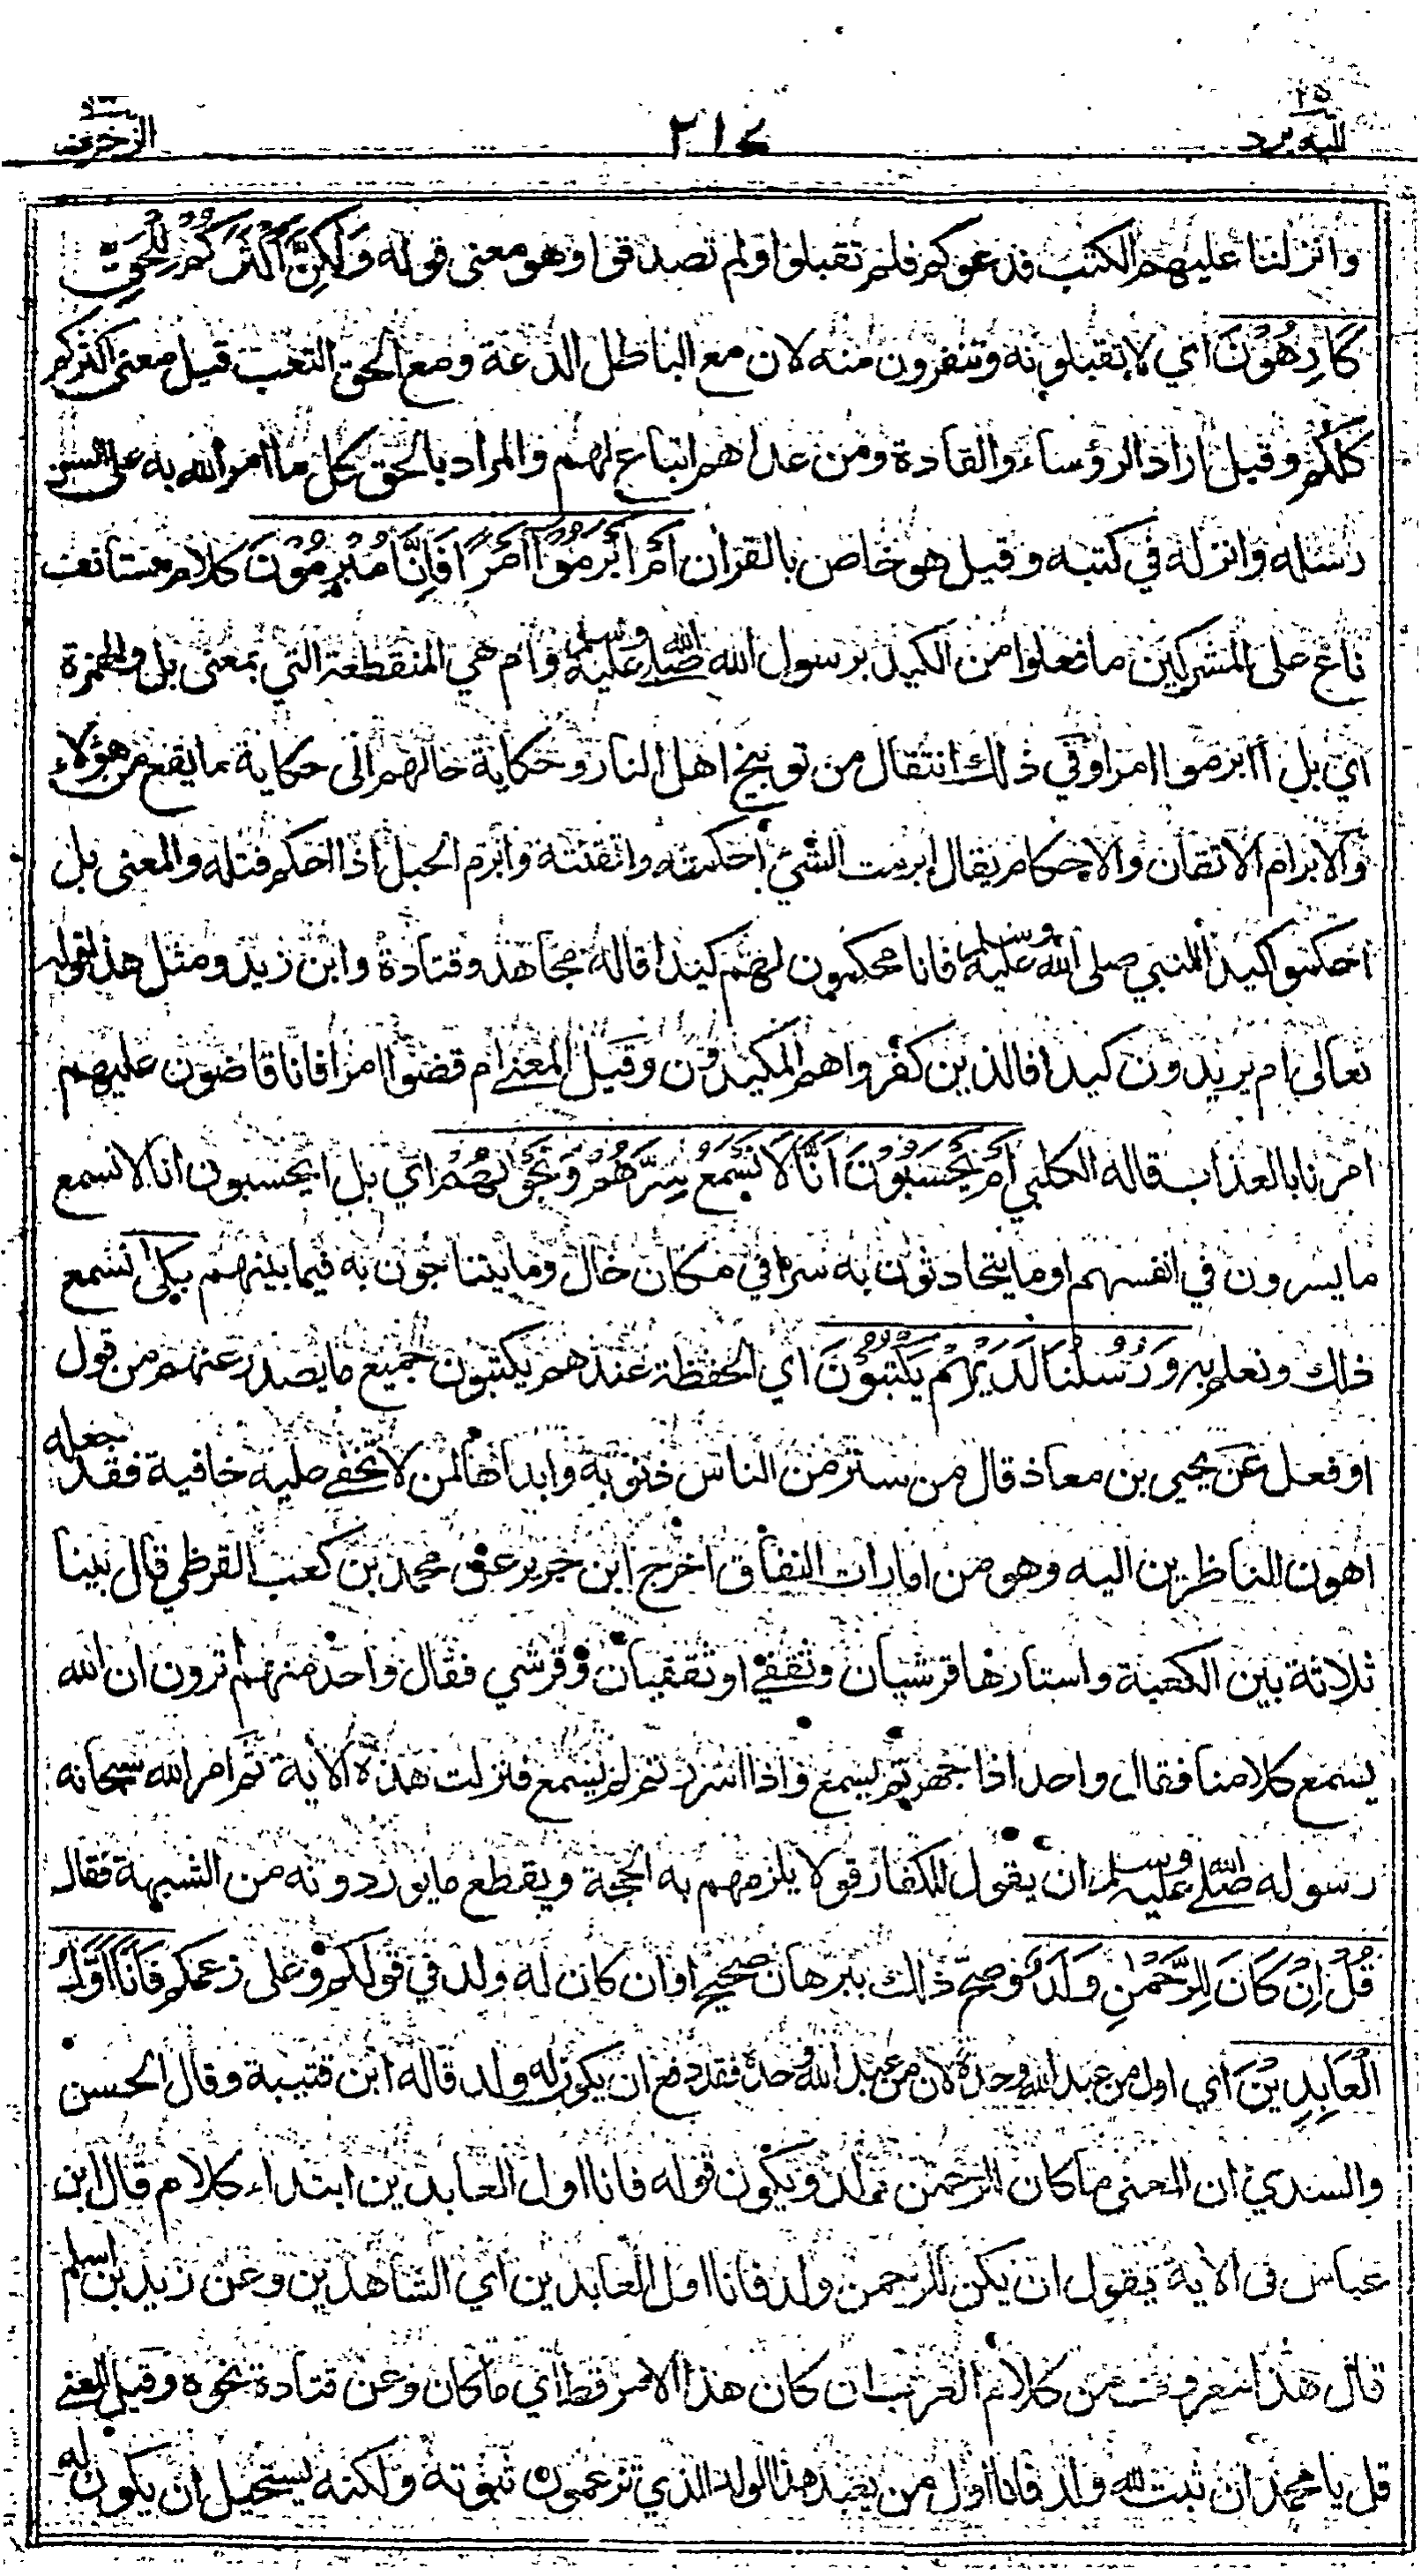 اليه يرد ٢٥ ٣١٤ الزخرف
وانزلنا عليهم الكتب فدعوكم فلم تقبلوا ولم تصدقوا وهو معنى قوله وَلَكِنَّ أَكْثَرَكُمْ لِلْحَقِّ
كَارِهُوْنَ اي لا تقبلونه وتنفرون منه لان مع الباطل الدعة ومع الحق التعب قيل معنى اكثركم
كلكم وقيل اراد الرؤساء والقادة ومن عداهم اتباع لهم والمراد بالحق كل ما امر الله به على السن
رسله وانزله في كتبه وقيل هو خاص بالقران أَمْ أَبْرَمُوْا أَمْرًا فَإِنَّا مُبْرِمُوْنَ كلام مستانف
ناع على المشركين ما فعلوا من الكيد برسول الله صلى الله عليه وسلم وام هي المنقطعة التي بمعنى بل والهمزة
اي بل أابرموا امرا وفي ذلك انتقال من توبيخ اهل النار وحكاية حالهم الى حكاية ما يقع من هؤلاء
والابرام الاتقان والاحكام يقال ابرمت الشيء احكمته واتقنته وابرم الحبل اذا احكم فتله والمعنى بل
احكموا كيد النبي صلى الله عليه وسلم فانا محكمون لهم كيدا قاله مجاهد وقتادة وابن زيد ومثل هذا قوله
تعالى ام يريدون كيدا فالذين كفروا هم المكيدون وقيل المعنى ام قضوا امرا فانا قاضون عليهم
امرنا بالعذاب قاله الكلبي أَمْ يَحْسَبُوْنَ أَنَّا لَا نَسْمَعُ سِرَّهُمْ وَنَجْوٰىهُمْ اي بل ايحسبون انا لا نسمع
ما يسرون في انفسهم او ما يتحادثون به سرا في مكان خال وما يتناجون به فيما بينهم بَلٰى نسمع
ذلك ونعلم به وَرُسُلُنَا لَدَيْهِمْ يَكْتُبُوْنَ اي الحفظة عندهم يكتبون جميع ما يصدر عنهم من قول
او فعل عن يحيى بن معاذ قال من ستر من الناس ذنوبه وابداها لمن لا تخفى عليه خافية فقد جعله
اهون الناظرين اليه وهو من امارات النفاق اخرج ابن جرير عن محمد بن كعب القرظي قال بينا
ثلاثة بين الكعبة واستارها قرشيان وثقفي او ثقفيان وقرشي فقال واحد منهم ترون ان الله
يسمع كلامنا فقال واحد اذا جهرتم يسمع واذا اسررتم لم يسمع فنزلت هذه الآية ثم امر الله سبحانه
رسوله صلى الله عليه وسلم ان يقول للكفار قولا يلزمهم به الحجة ويقطع ما يوردونه من الشبهة فقال
قُلْ إِنْ كَانَ لِلرَّحْمٰنِ وَلَدٌ وصح ذلك ببرهان صحيح او ان كان له ولد في قولكم وعلى زعمكم فَأَنَا أَوَّلُ
الْعَابِدِيْنَ اي اول من عبد الله وحده لان من عبد الله وحده فقد دفع ان يكون له ولد قاله ابن قتيبة وقال الحسن
والسدي ان المعنى ما كان للرحمن ولد ويكون قوله فانا اول العابدين ابتداء كلام قال ابن
عباس في الآية يقول ان يكن للرحمن ولد فانا اول العابدين اي الشاهدين وعن زيد بن اسلم
قال هذا معروف من كلام العرب ان كان هذا الامر قط اي ما كان وعن قتادة نحوه وقيل المعنى
قل يا محمد ان ثبت لله ولد فانا اول من يعبد هذا الولد الذي تزعمون ثبوته ولكنه يستحيل ان يكون له